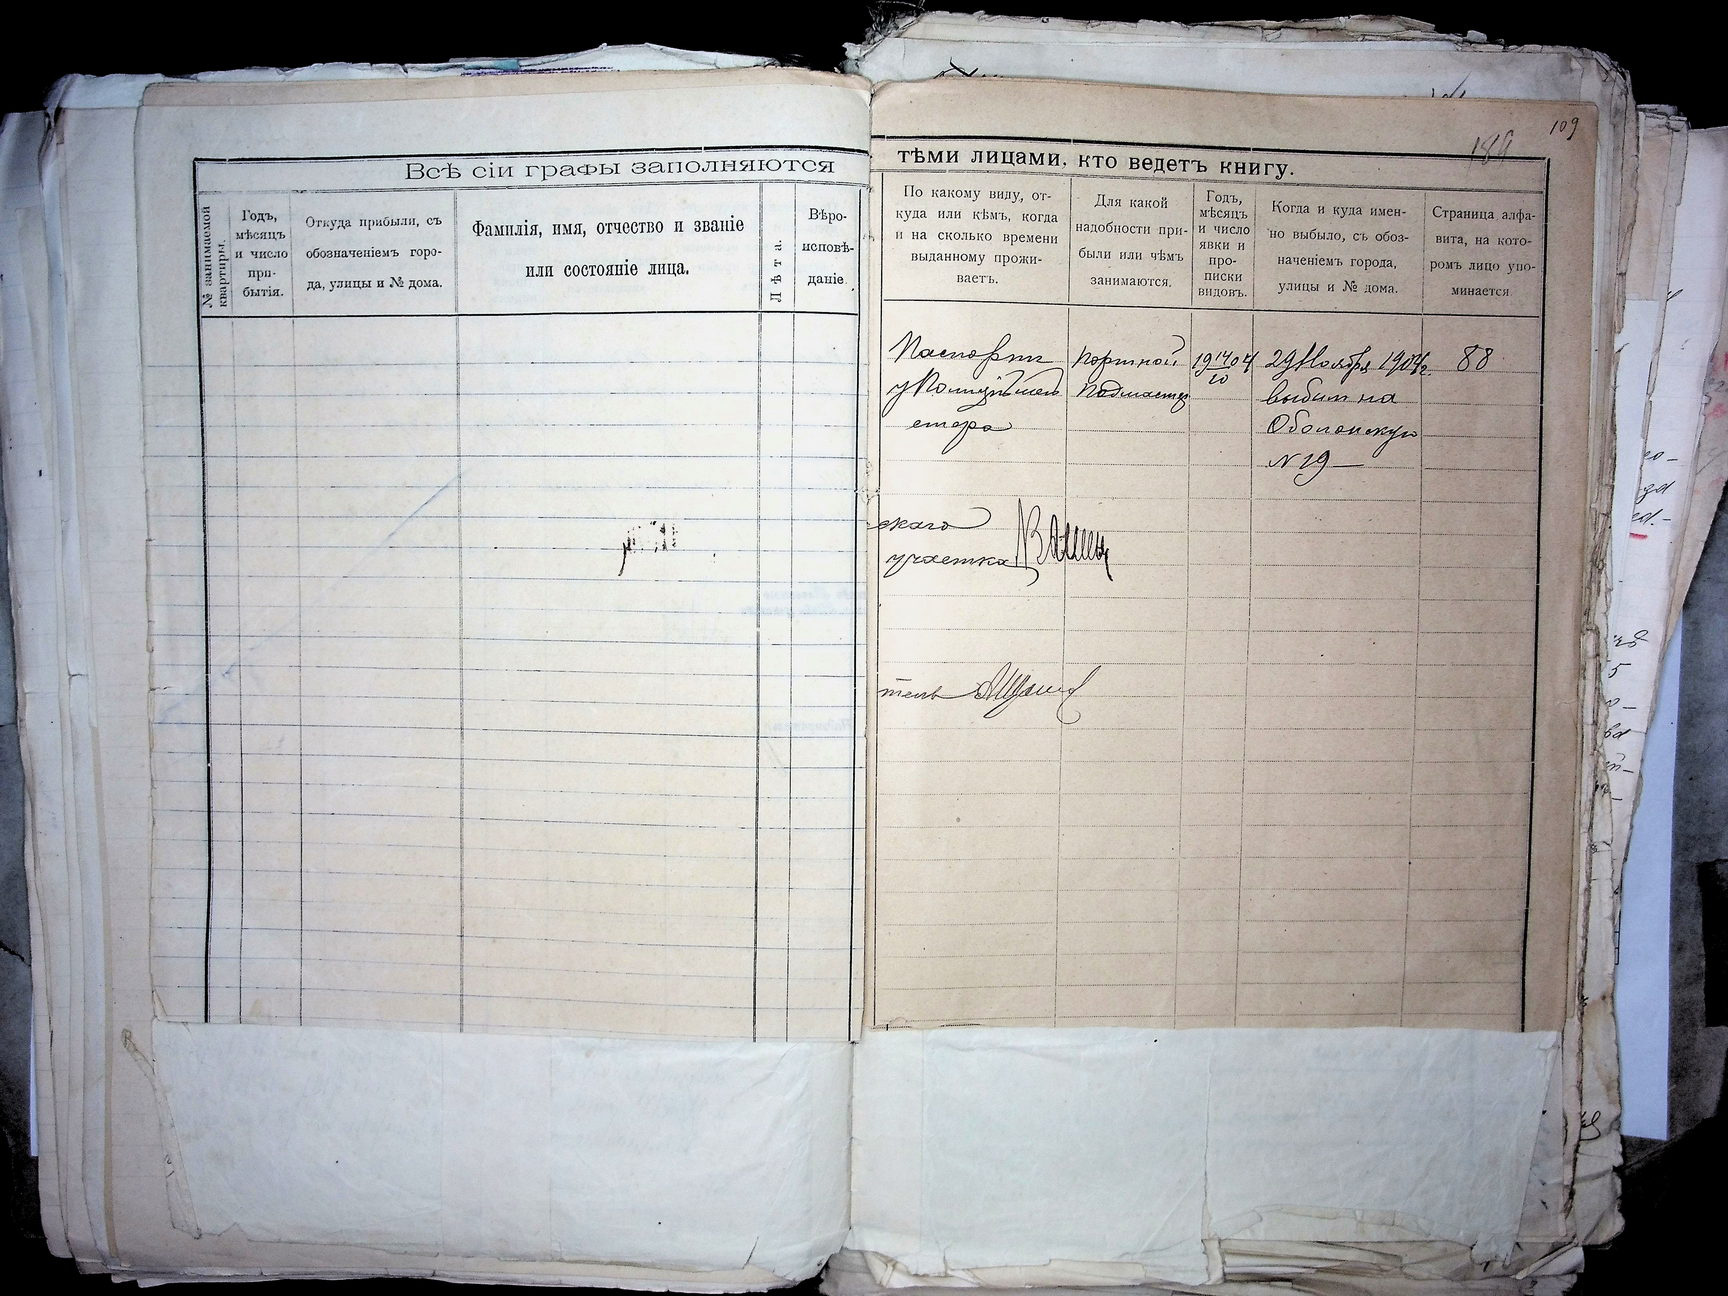 109
Всѣ сіи графы заполняются
№ занимаемой
квартиры.
Годъ,
мѣсяцъ
и число
при-
бытія.
Откуда прибыли, съ
обозначеніемъ горо-
да, улицы и № дома.
Фамилія, имя, отчество и званіе
или состояніе лица.
Лѣта.
Вѣро-
исповѣ-
даніе
тѣми лицами, кто ведетъ книгу.
По какому виду, от-
куда или кѣмъ, когда
и на сколько времени
выданному прожи-
ваетъ.
Для какой
надобности при-
были или чѣмъ
занимаются.
Годъ,
мѣсяцъ
и число
явки и
про-
писки
видовъ.
Когда и куда имен-
но выбыло, съ обоз-
наченіемъ города,
улицы и № дома.
Страница алфа-
вита, на кото-
ромъ лицо упо-
минается
Паспортъ
у Полицѣймей
стера
скаго
участка
тель
Портной
Подмастер
19 14/10 04
29 Ноября 1904 г.
выбыл на
Оболонскую
№ 19
88